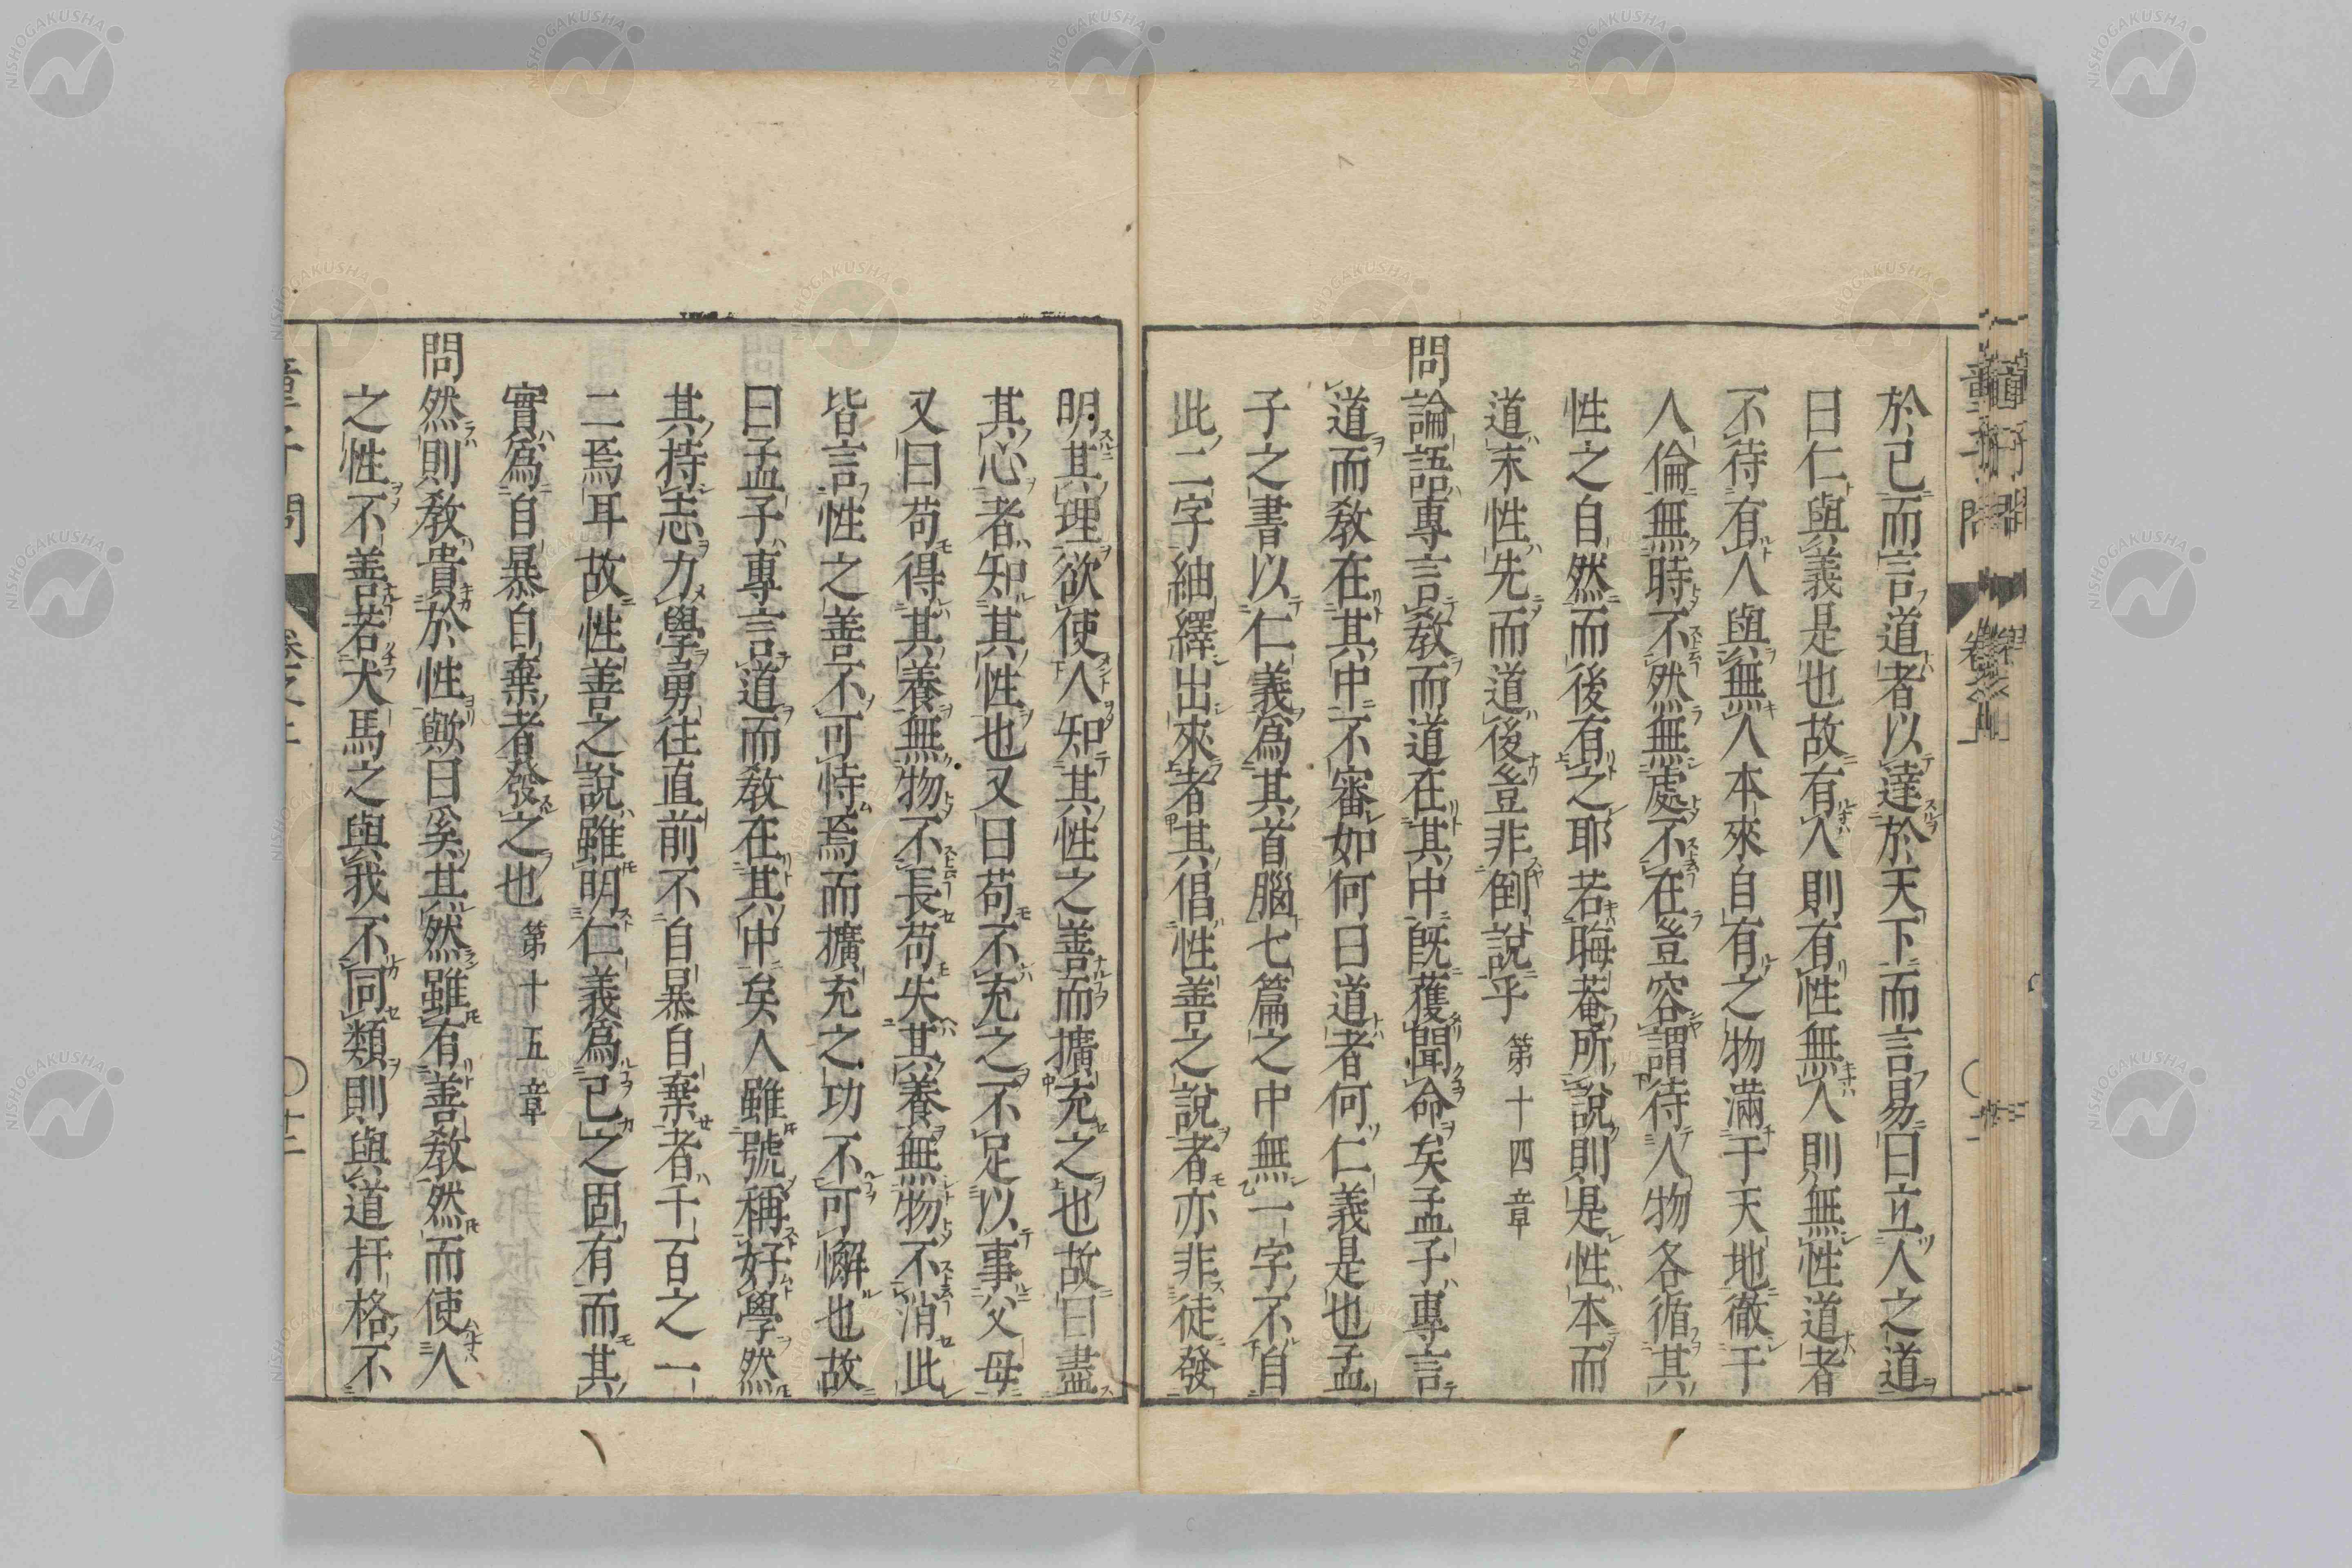 於己而言道者以達於天下而言易曰立人之道
曰仁與義是也故有人則有性無人則無性道者
不待有人與無人本來自有之物滿于天地徹于
人倫無時不然無處不在豈容謂待人物各循其
性之自然而後有之耶若晦菴所說則是性本而
道末性先而道後豈非倒說乎 第十四章
問論語專言教而道在其中既獲聞命矣孟子專言
道而教在其中不審如何曰道者何仁義是也孟
子之書以仁義爲其首腦七篇之中無一字不自
此二字紬繹出來者其倡性善之說者亦非徒發
明其理欲使人知其性之善而擴充之也故曰盡
其心者知其性也又曰苟不充之不足以事父母
又曰苟得其養無物不長苟失其養無物不消此
皆言性之善不可恃焉而擴充之功不可懈也故
曰孟子專言道而教在其中矣人雖號稱好學然
其持志力學勇往直前不自暴自棄者千百之一
二焉耳故性善之說雖明仁義爲己之固有而其
實爲自暴自棄者發之也 第十五章
問然則教貴於性歟曰奚其然雖有善教然而使人
之性不善若犬馬之與我不同類則與道扞格不
童子問
NISHOGAKUSHA